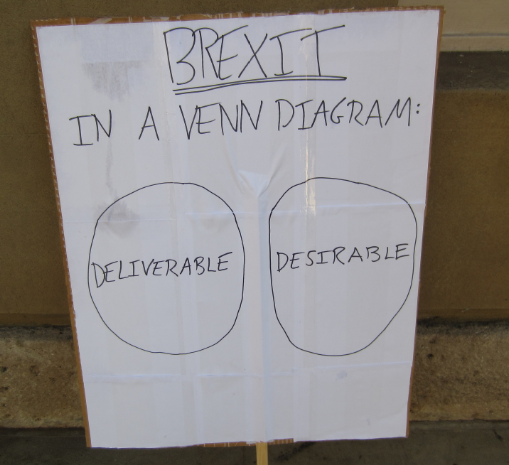 BREXIT
IN A VENN DIAGRAM:
DELIVERABLE
DESIRABLE